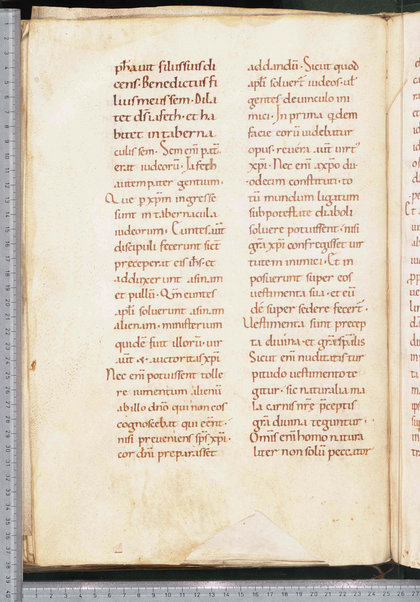 phauit filius suus di
cens. Benedictus fi
lius meus sem. Dila
tet ds iafeth. et ha
bitet in taberna
culis sem. Sem eni pat
erat iudeoru. Iafeth
autem pater gentium.
Que p xpm ingresse
sunt in tabernacula
iudeorum. Euntes aut
discipuli fecerunt sict
preceperat eis ihs. et
adduxerunt asinam
et pullu. Qm euntes
apli soluerunt asinam
alienam. ministerium
quide fuit illoru. uir
aut & auctoritas xpi.
Nec eni potuissent tolle
re iumentum alienu
ab illo dno qui non eos
cognoscebat qui eent.
nisi preueniens sps xpi.
cor dni preparasset
addandu. Sicut quod
apli soluert iudeos. ul
gentes de uinculo ini
mici. In prima qdem
facie coru uidebatur
opus. reuera aut uirt
xpi. Nec eni a xpo du
odecim constituti. to
tu mundum ligatum
sub potestate diaboli
soluere potuissent. nisi
gra xpi confregisset uir
tutem inimici. Et in
posuerunt super eos
uestimenta sua. et eu
de super sedere fecert.
Uestimenta sunt precep
ta diuina. et gra spalis
Sicut eni nuditatis tur
pitudo uestimento te
gitur. sic naturalia ma
la carnis nre pceptis
gra diuina teguntur.
Omis eni homo natura
liter non solu peccator